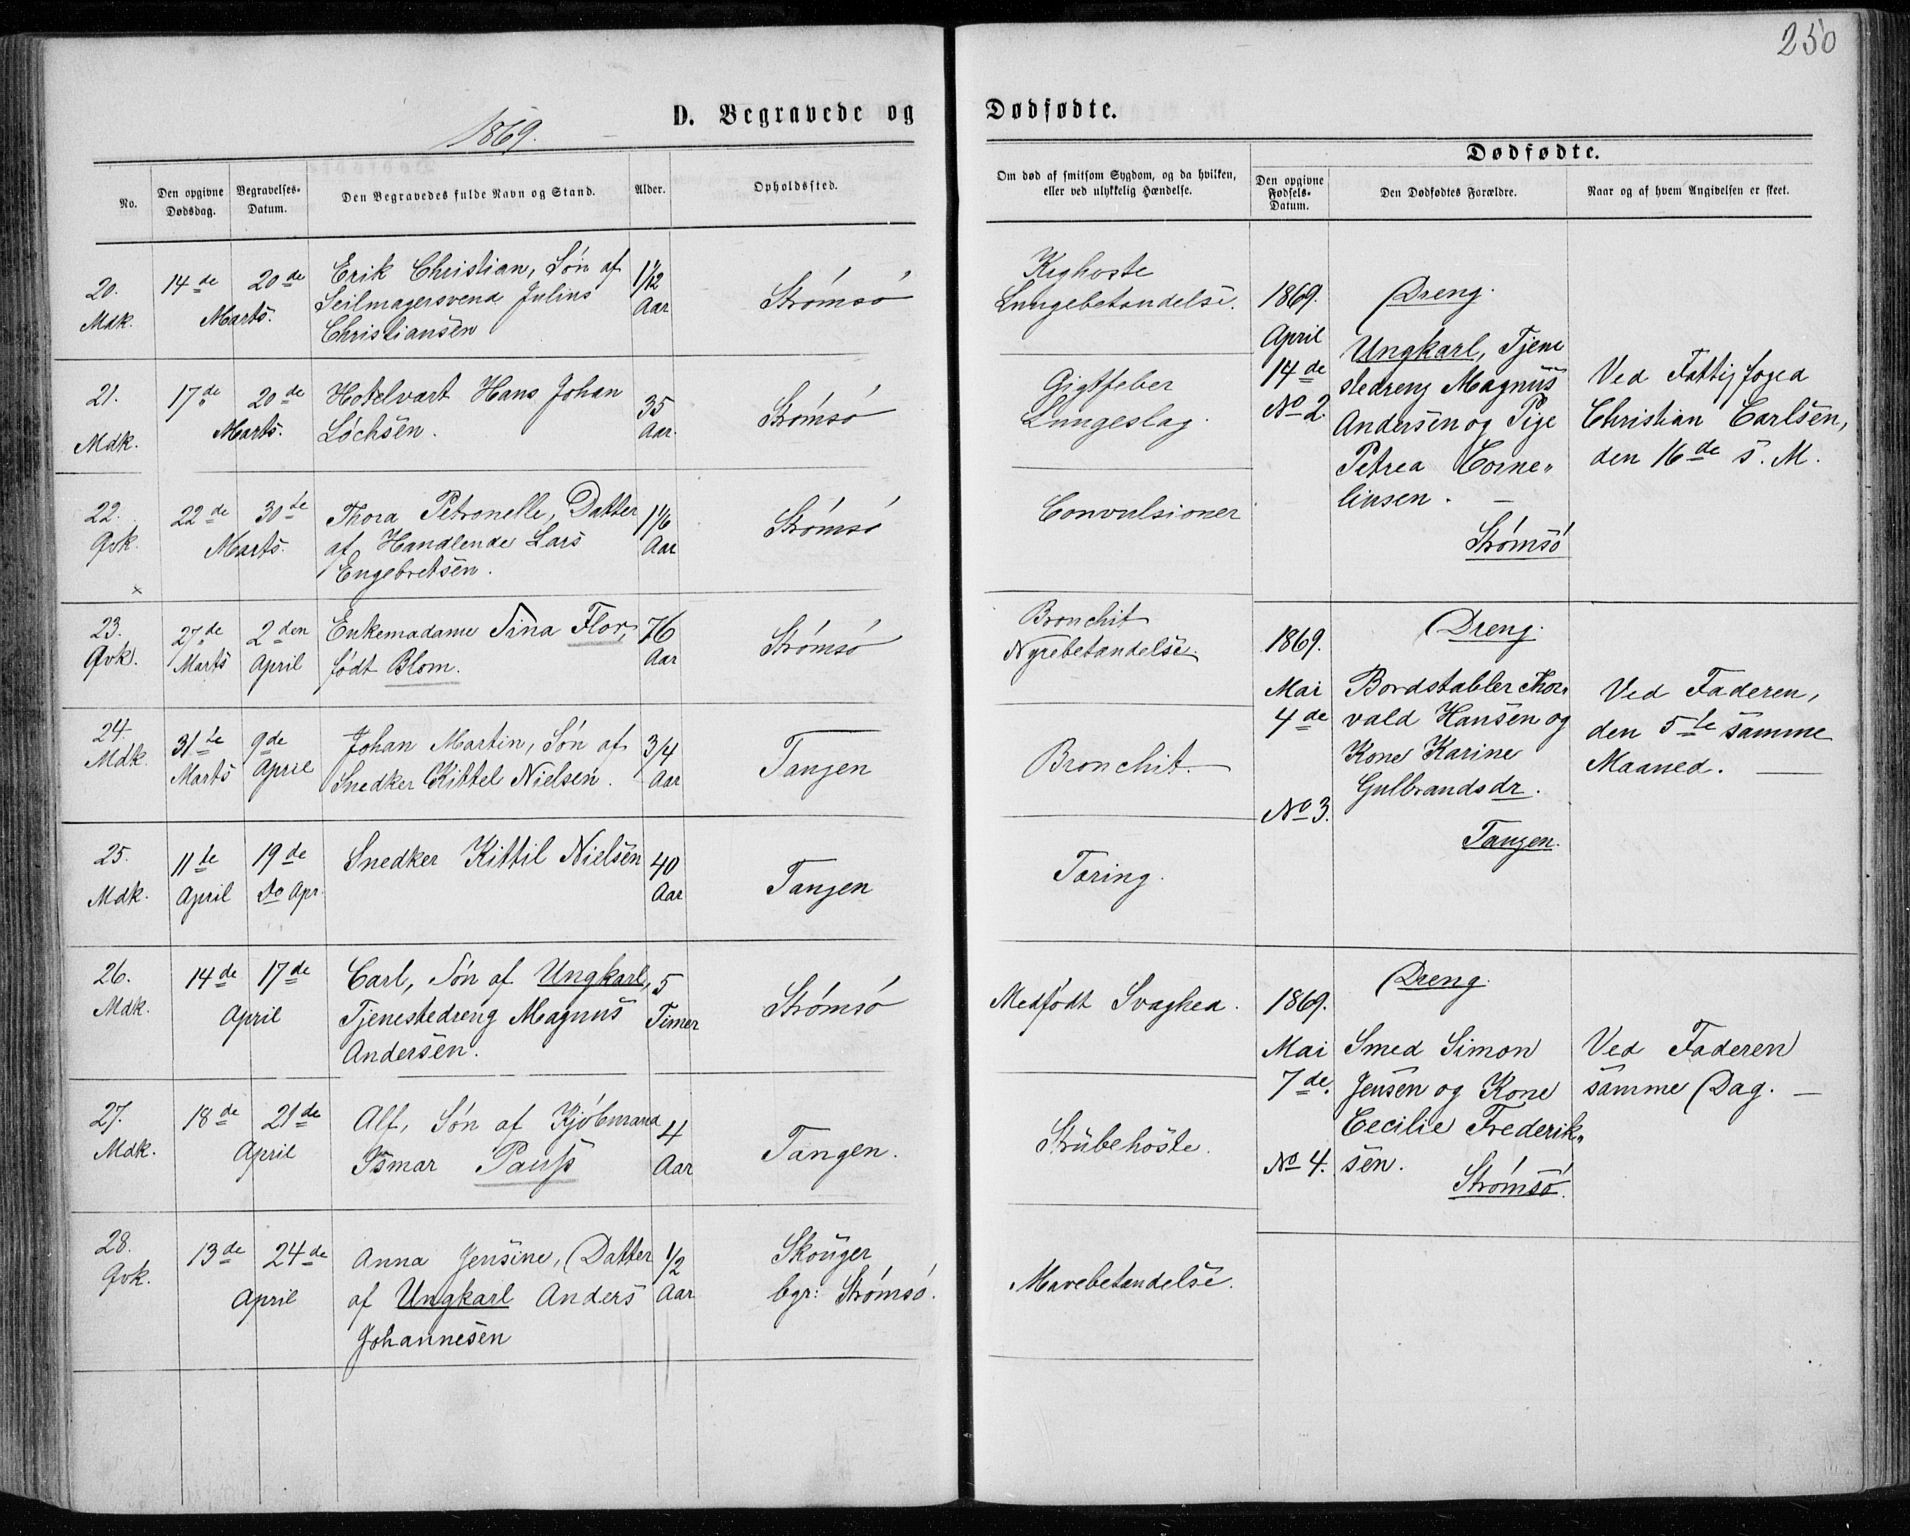 250
1869.
D. Begravede og Dødfødte.
Dødfødte.
No.
Den opgivne Dødsdag.
Begravelses-Datum.
Den Begravedes fulde Navn og Stand.
Alder.
Opholdssted.
Om død af smitsom Sygdom, og da hvilken, eller ved ulykkelig Hændelse.
Den opgivne Fødsels-Datum.
Den Dødfødtes Forældre.
Naar og af hvem Angivelsen er skeet.
20. Mdk.
14de 20de
Marts.
Erik Christian, Søn af
Seilmagersvend Julius
Christiansen
1 1/12 Aar
Strømsø
Kighoste
Lungebetændelse.
21. Mdk.
17de 20de
Marts.
Hotelvært Hans Johan
Løchsen.
35 Aar.
Strømsø
Gigtfeber
Lungeslag.
22. Qvk.
22de 30te
Marts.
Thora Petronelle, Datter
af Handlende Lars
Engebretsen.
1 1/6 Aar
Strømsø
Convulsioner
×
23. Qvk.
27de Marts
2den April
Enkemadame Sina Flor,
født Blom.
76 Aar
Strømsø
Bronchit
Nyrebetændelse.
24. Mdk.
31te Marts
9de April
Johan Martin, Søn af
Snedker Kittel Nielsen.
3/4 Aar
Tangen
Bronchit.
25. Mdk.
11te April
19de Do Apr.
Snedker Kittil Nielsen
40 Aar
Tangen
Tæring.
26. Mdk.
14de 17de
April
Carl, Søn af Ungkarl,
Tjenestedreng Magnus
Andersen.
5 Timer
Strømsø
Medfødt Svaghed.
27. Mdk.
18de 21de
April
Alf, Søn af Kjøbmand
Ismar Pauss
4 Aar
Tangen.
Strubehoste.
28. Qvk.
13de 24de
April
Anna Jensine, Datter
af Ungkarl Anders
Johannesen
1/2 Aar
Skouger
bgr: Strømsø.
Mavebetændelse.
1869.
April
14de
No 2.
Dreng.
Ungkarl, Tjene
stedreng Magnus
Andersen og Pige
Petrea Corne„
liusen. —
Strømsø
Ved Fattigfoged
Christian Carlsen,
den 16de s. M.
1869.
Mai
4de
No 3.
Dreng.
Bordstabler Thor„
vald Hansen og
Kone Karine
Gulbrandsdr.
Tangen.
Ved Faderen,
den 5te samme
Maaned. —
1869.
Mai
7de.
No 4.
Dreng.
Smed Simon
Jensen og Kone
Cecilie Frederik„
sen.
Strømsø.
Ved Faderen
samme Dag. —